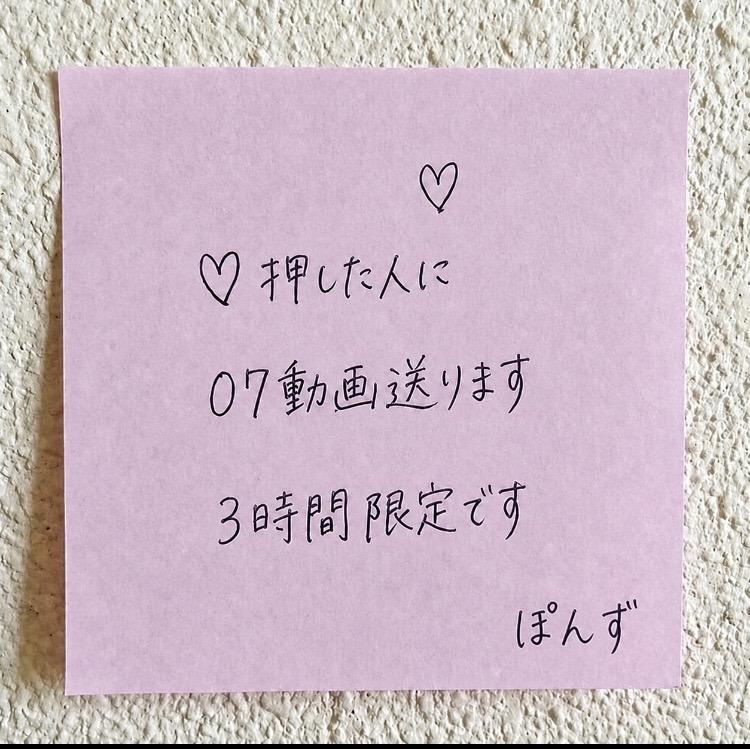 ♡
♡押した人に
07動画送ります
3時間限定です
ぽんず